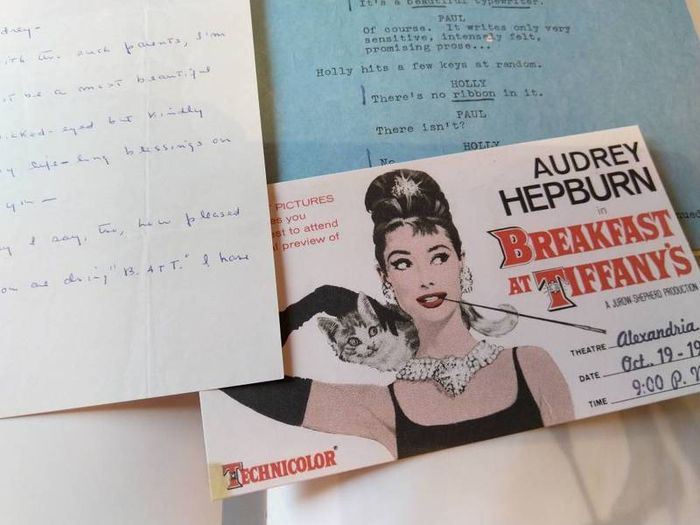 with two such parents, I'm
be a most beautiful
wicked-eyed but kindly
life-long blessings on
you —
I say, too, how pleased
are doing "B. AT T." I have
It's a beautiful typewriter.
PAUL
Of course. It writes only very
sensitive, intensely felt,
promising prose...
Holly hits a few keys at random.
HOLLY
There's no ribbon in it.
PAUL
There isn't?
HOLLY
No
PICTURES
es you
st to attend
l preview of
AUDREY
HEPBURN
in
BREAKFAST
AT TIFFANY'S
A JUROW-SHEPHERD PRODUCTION
THEATRE Alexandria
DATE Oct. 19-19
TIME 9:00 P.
TECHNICOLOR®